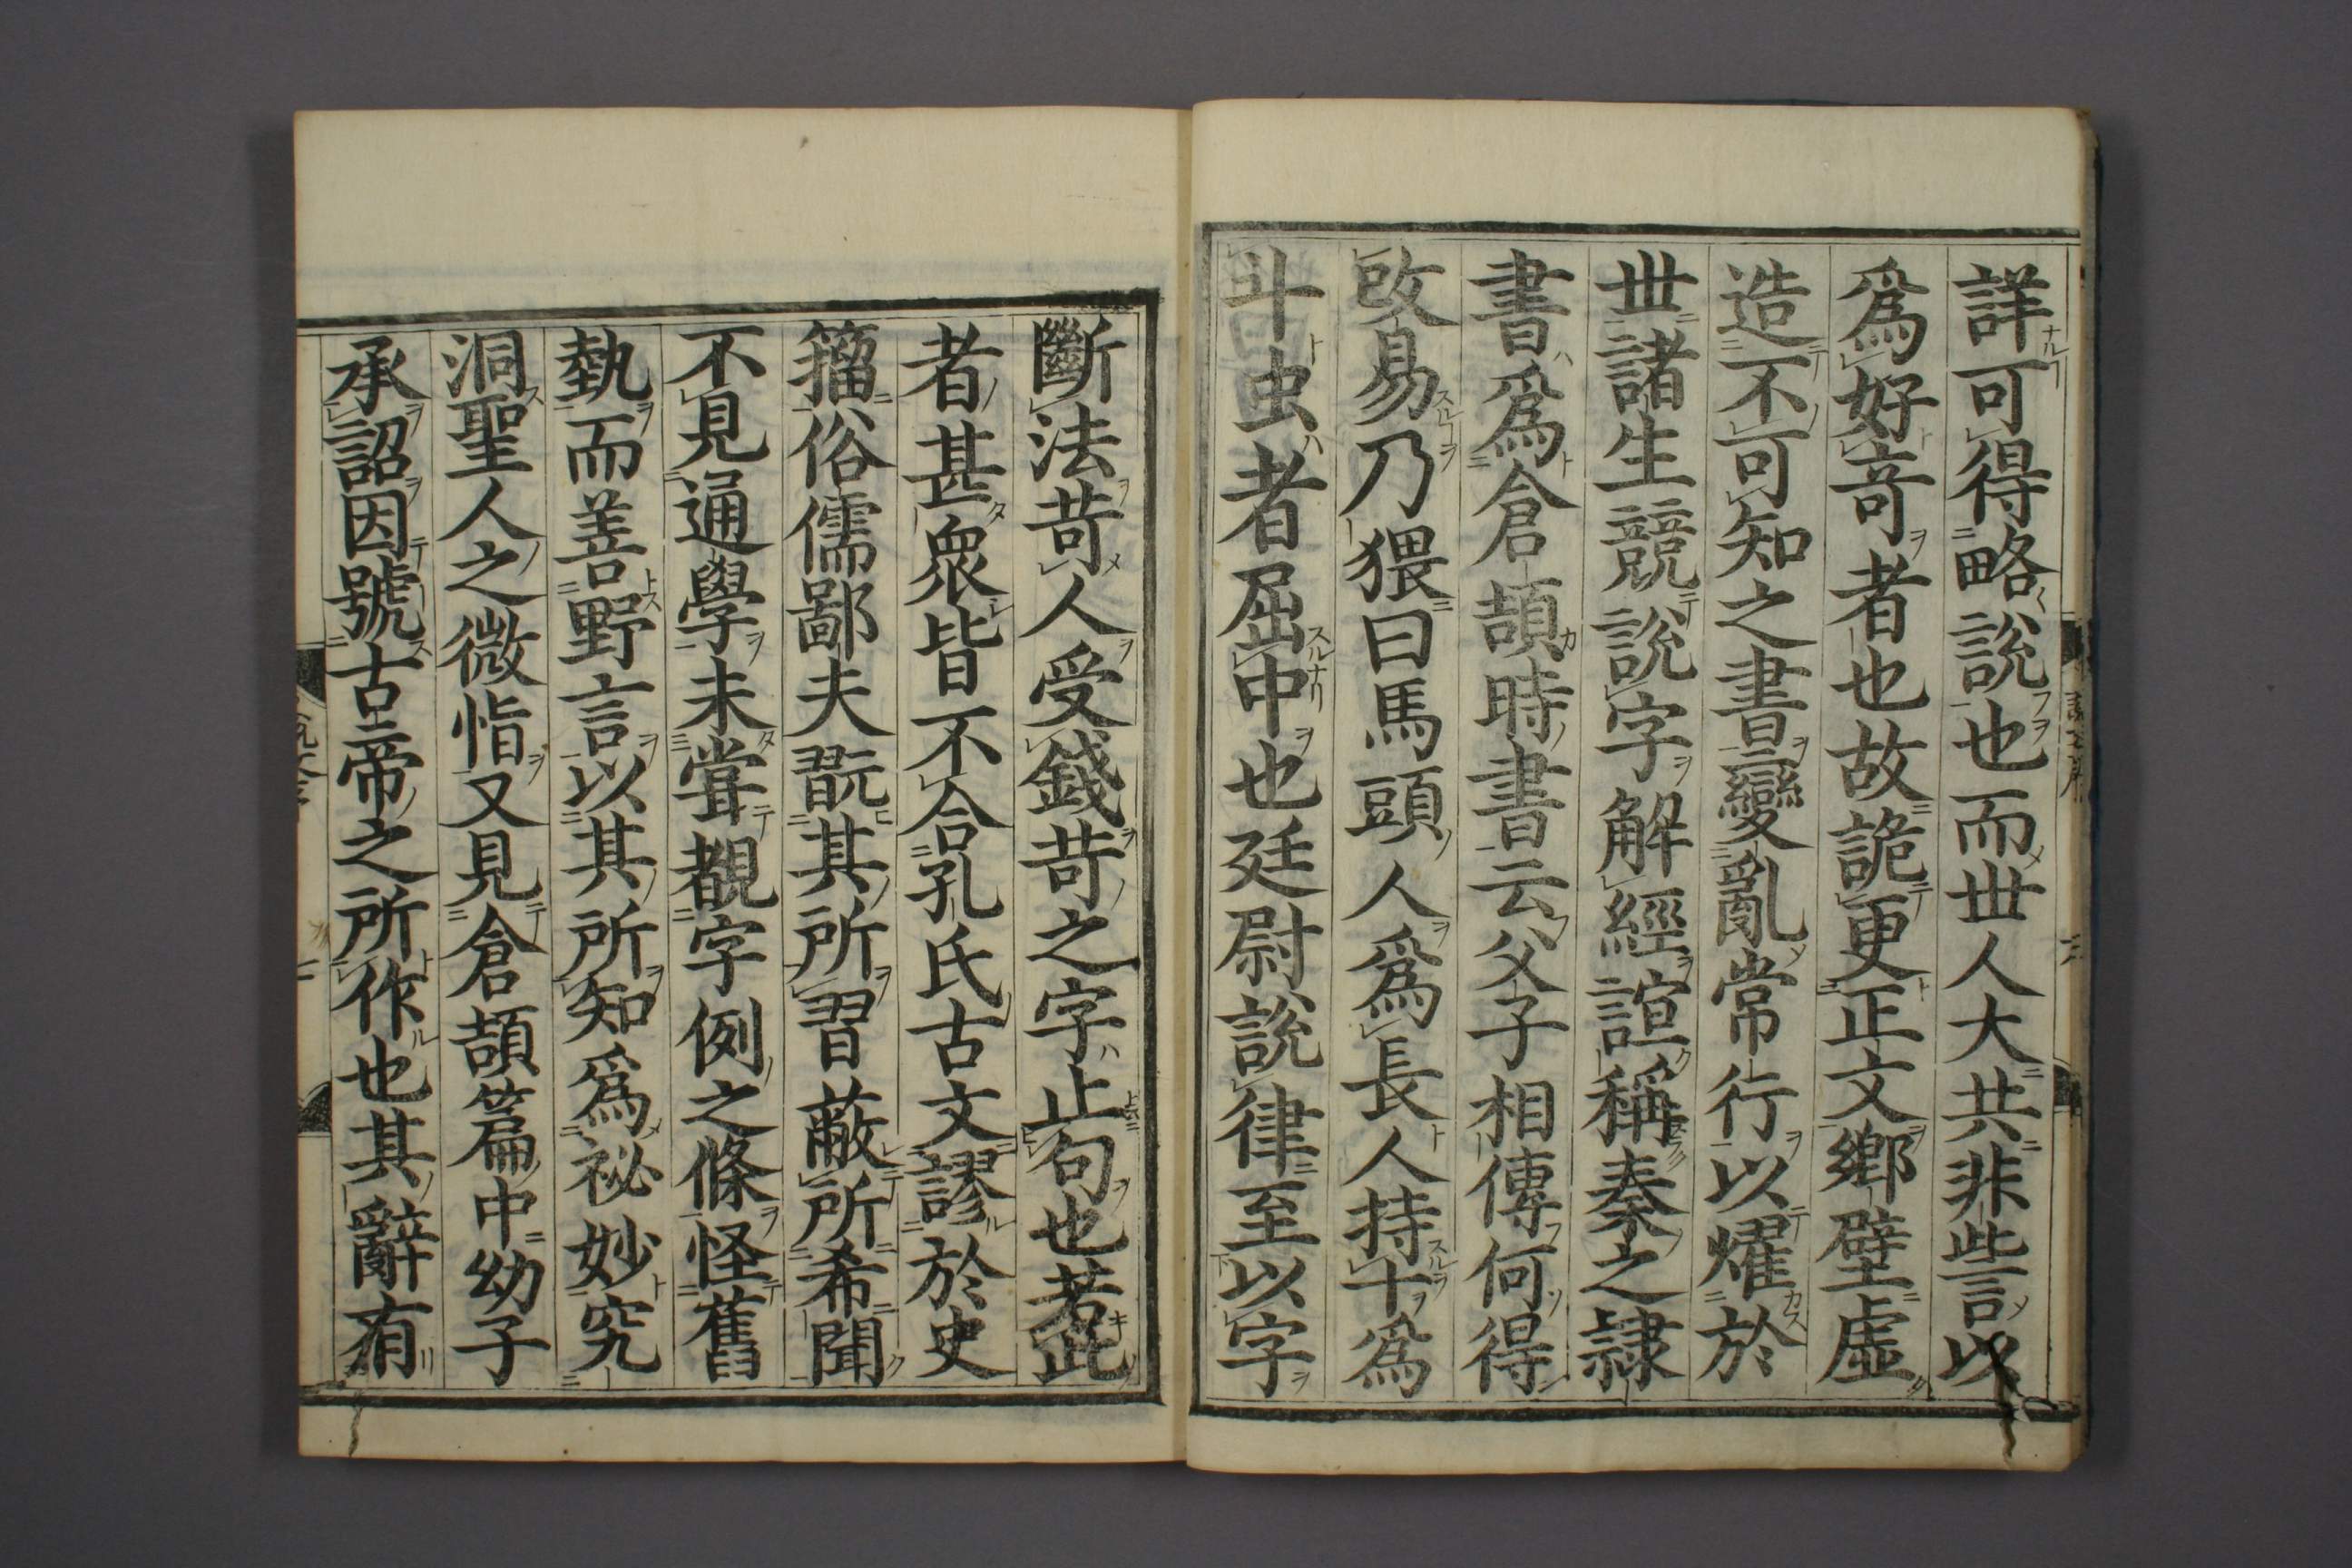 詳可得略說也而丗人大共非訾以
爲好竒者也故詭更正文鄉壁虛
造不可知之書變亂常行以燿於
丗諸生競說字解經諠稱秦之隷
書爲倉頡時書云父子相傳何得
改易乃猥曰馬頭人爲長人持十爲
斗虫者屈中也廷尉說律至以字
斷法苛人受錢苛之字止句也若此
者甚衆皆不合孔氏古文謬於史
籕俗儒鄙夫翫其所習蔽所希聞
不見通學未甞覩字例之條怪舊
埶而善野言以其所知爲祕妙究
洞聖人之微恉又見倉頡篇中幼子
承詔因號古帝之所作也其辭有